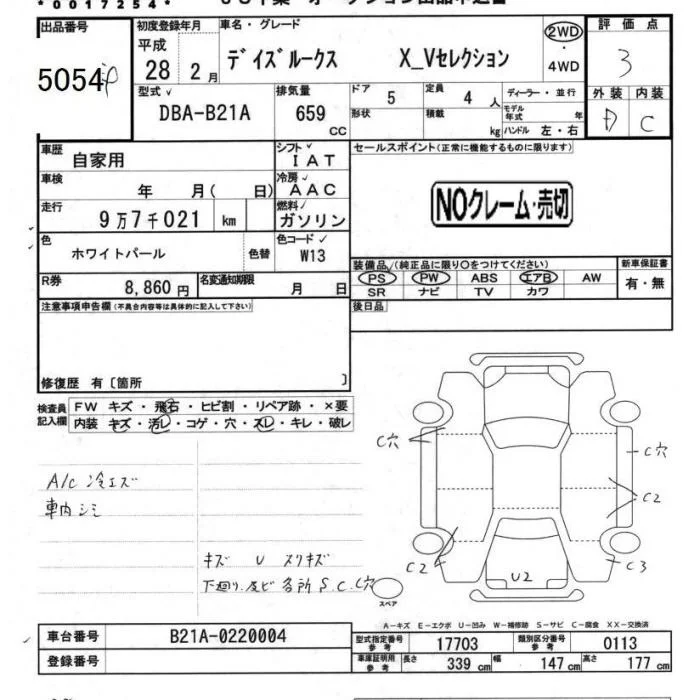 *0017254*
出品番号 初度登録年月 車名・グレード 2WD 評価点
5054 平成 28 2月 デイズルークス X_Vセレクション ・ 4WD 3
型式 排気量 ドア 定員 ディーラー・並行 外装 内装
DBA-B21A 659 CC 5 4 人 モデル年式 年 D C
形状 積載 kg ハンドル 左・右
車歴 自家用 シフト IAT セールスポイント(正常に機能するものに限ります)
車検 年 月( 日) 冷房 AAC
走行 9万7千021 km 燃料 ガソリン NOクレーム・売切
色 ホワイトパール 色替 色コード W13
装備品(純正品に限り○をつけてください) 新車保証書
PS PW ABS エアB AW 有・無
SR ナビ TV カワ
R券 8,860円 名変通知期限 月 日
注意事項申告欄(不具合内容等は具体的に記入して下さい) 後日品
修復歴 有〔箇所 〕
検査員記入欄 FW キズ・飛石・ヒビ割・リペア跡・×要
内装 キズ・汚レ・コゲ・穴・スレ・キレ・破レ
C穴 C穴
A/C 冷エズ
C2
車内シミ
キズ U スリキズ
C2 U2 C3
下廻り、及ビ各所 S.C.C穴
スペア
A-キズ E-エクボ U-凹み W-補修跡 S-サビ C-腐食 XX-交換済
車台番号 B21A-0220004
型式指定番号 参考 17703 類別区分番号 参考 0113
登録番号
車庫証明用 参考 長さ 339 cm 幅 147 cm 高さ 177 cm